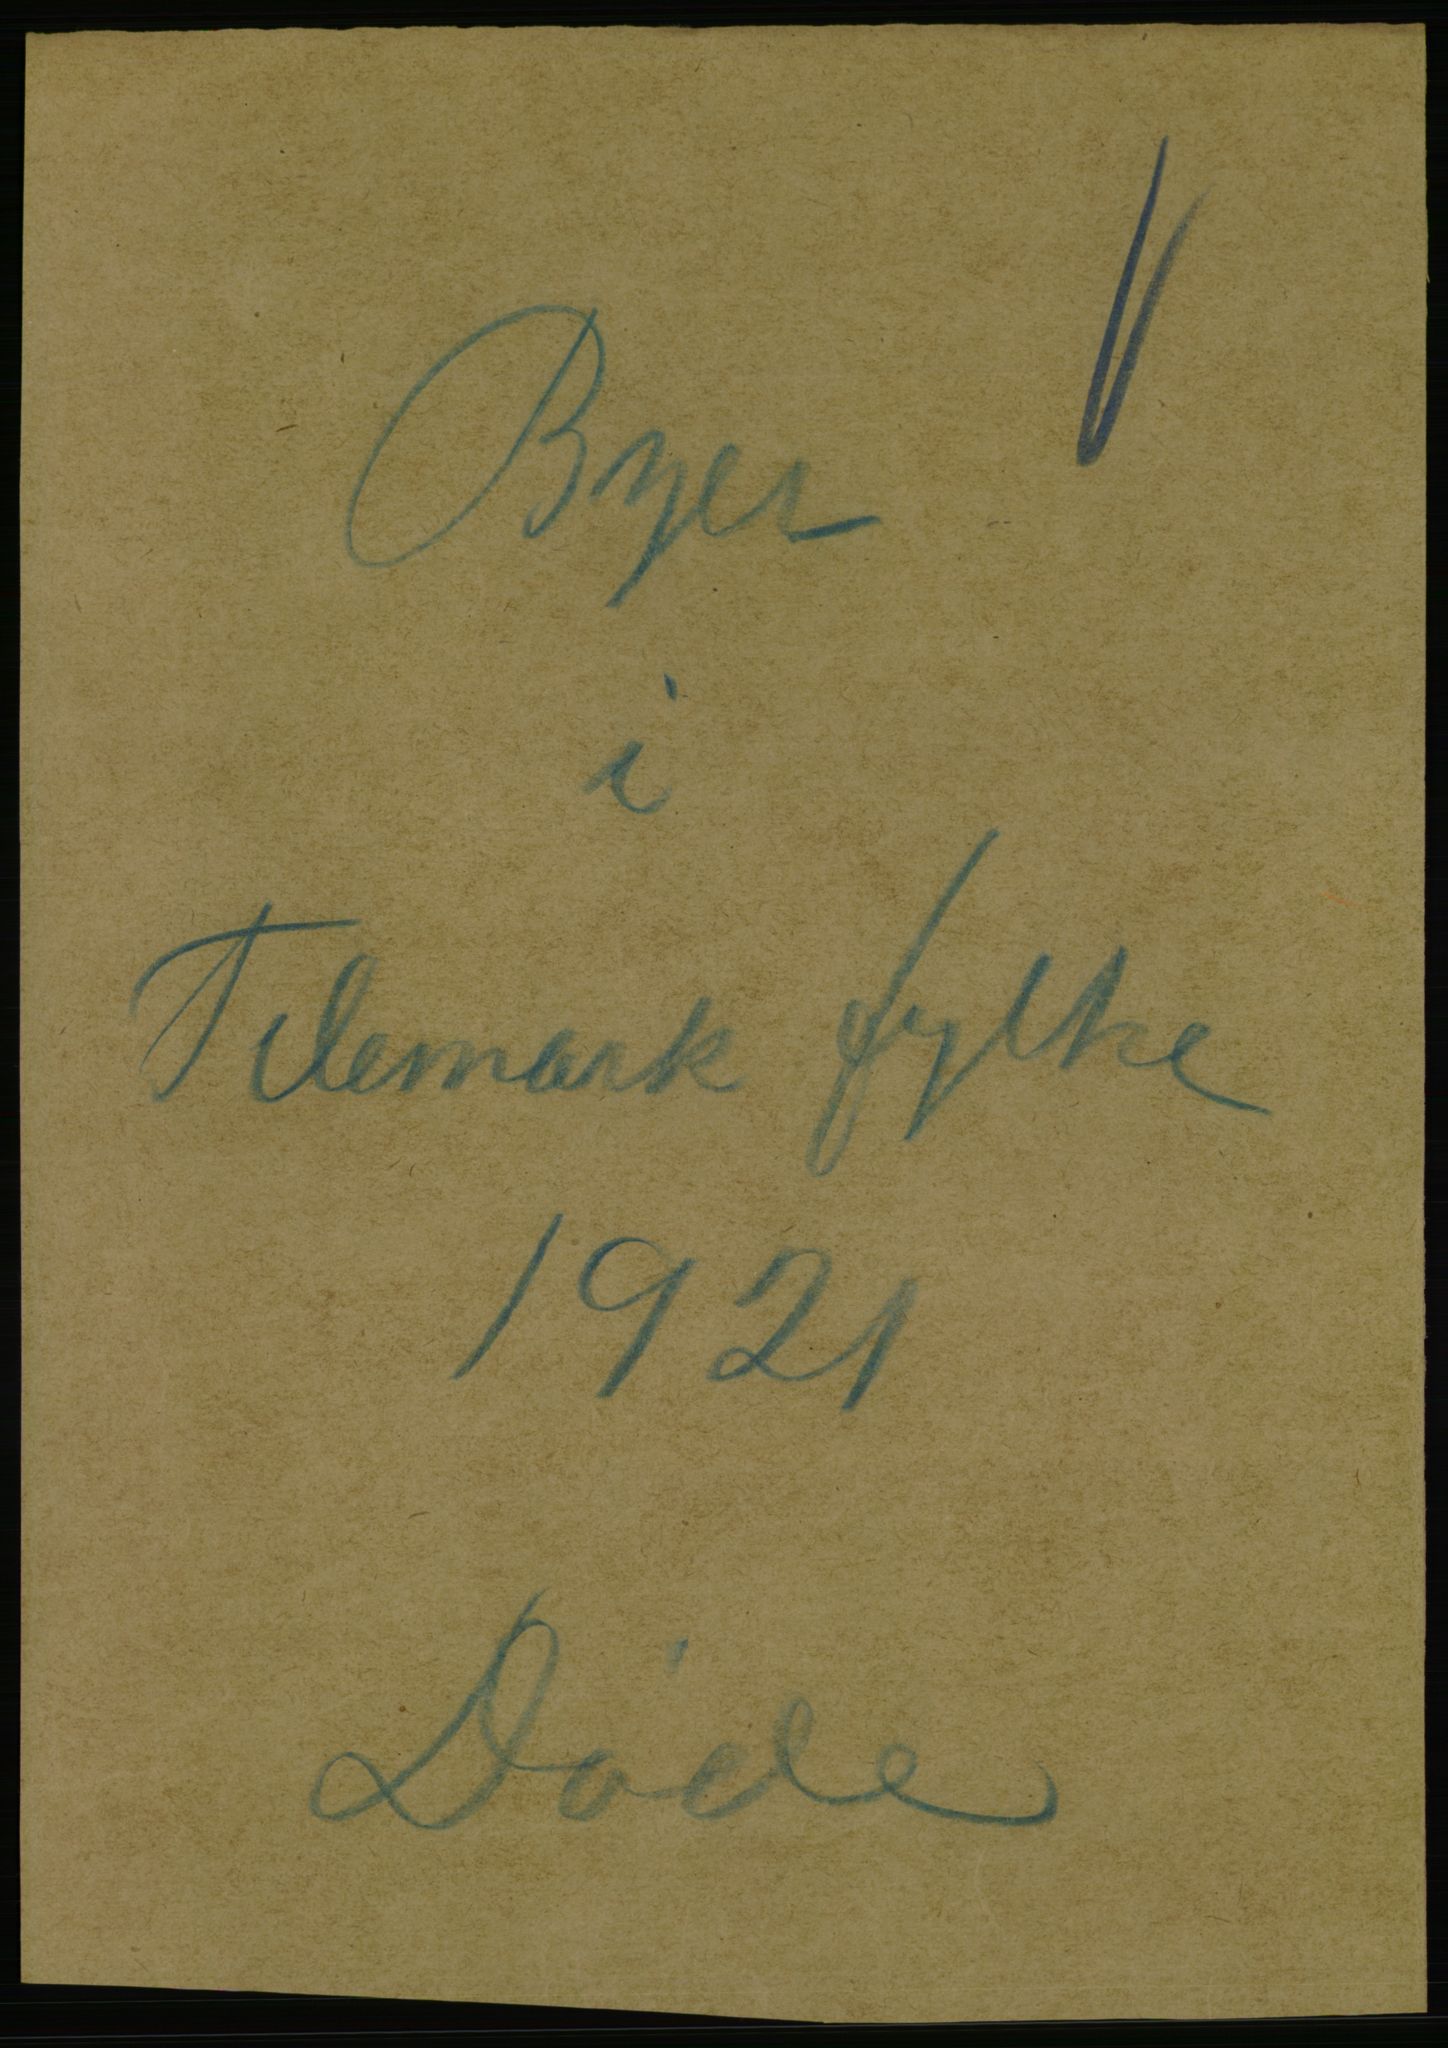 Byer
i
Telemark fylke
1921
Döde